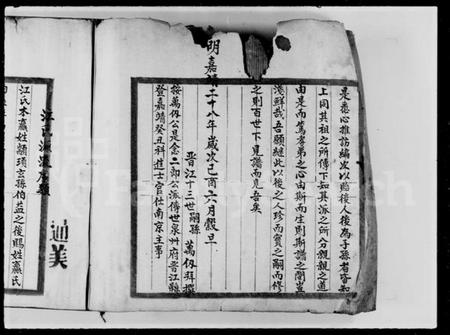 是悉心推訪編次以貽後人後為子孫者有知
上同其祖之所傳下知其派之所分親親之道
由是而篤孝弟之心由斯而生則斯譜之關豈
淺鮮哉吾願繼此以後之人珍而寶之嗣而修
之則百世下見譜而見吾矣
明嘉靖二十八年歲次己酉六月穀旦
晉江十三世嗣孫萬仞拜撰
按萬仞公是念二郎公派傳世泉州府晉江縣
登嘉靖癸丑科進士官仕南京主事
江氏源流序題
通美
江氏本嬴姓顓頊玄孫伯益之後賜姓嬴氏